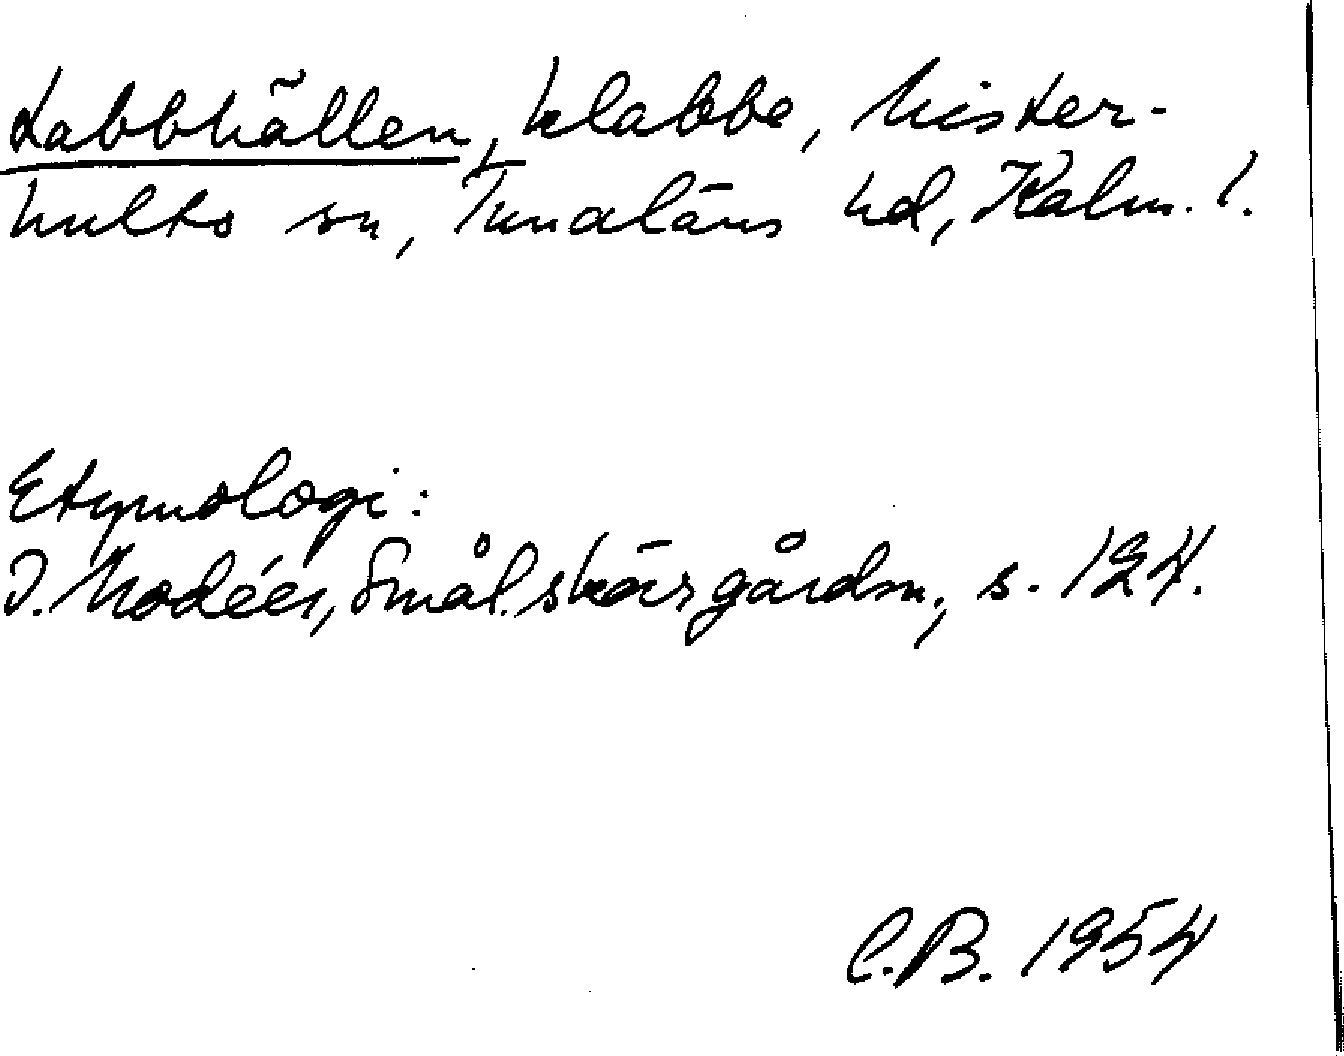 Labbhällen, klabbe, Mister-
hults sn, Tunaläns hd, Kalm. l.
Etymologi:
I. Modéer, Smål. skärgårdsn, s. 124.
C.B. 1954